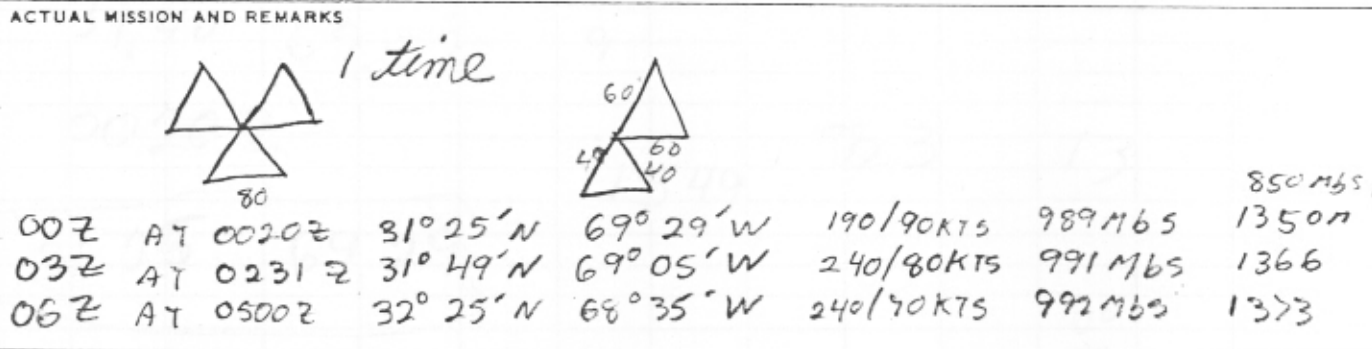 ACTUAL MISSION AND REMARKS
1 time
60
60
40
40
80
850 mbs
00Z AT 0020Z 31°25'N 69°29'W 190/90KTS 989 Mbs 1350m
03Z AT 0231Z 31°49'N 69°05'W 240/80KTS 991 Mbs 1366
06Z AT 0500Z 32°25'N 68°35'W 240/70KTS 992 Mbs 1373